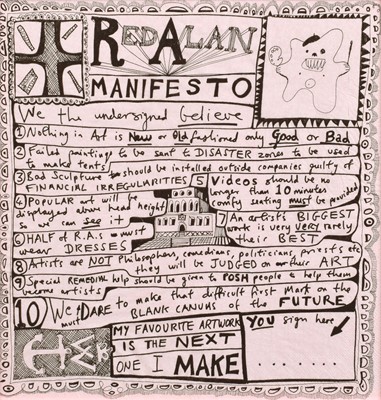 RED ALAN
MANIFESTO
We the undersigned believe
1 Nothing in Art is New or Old fashioned only Good or Bad
2 Failed paintings to be sent to DISASTER zones to be used
to make tents
3 Bad Sculpture should be installed outside companies guilty of
FINANCIAL IRREGULARITIES
4 POPULAR art will be
displayed above head height
so we can see it
5 Videos should be no
longer than 10 minutes
comfy seating must be provided
6 HALF of R.A.s must
wear DRESSES
7 An artist's BIGGEST
work is very VERY rarely
their BEST
8 Artists are NOT Philosophers, comedians, politicians, priests etc
they will be JUDGED on their ART
9 Special REMEDIAL help should be given to POSH people to help them
become artists
10 We must DARE to make that difficult first mark on the
BLANK CANVAS of the FUTURE
MY FAVOURITE ARTWORK
IS THE NEXT
ONE I MAKE
YOU sign here